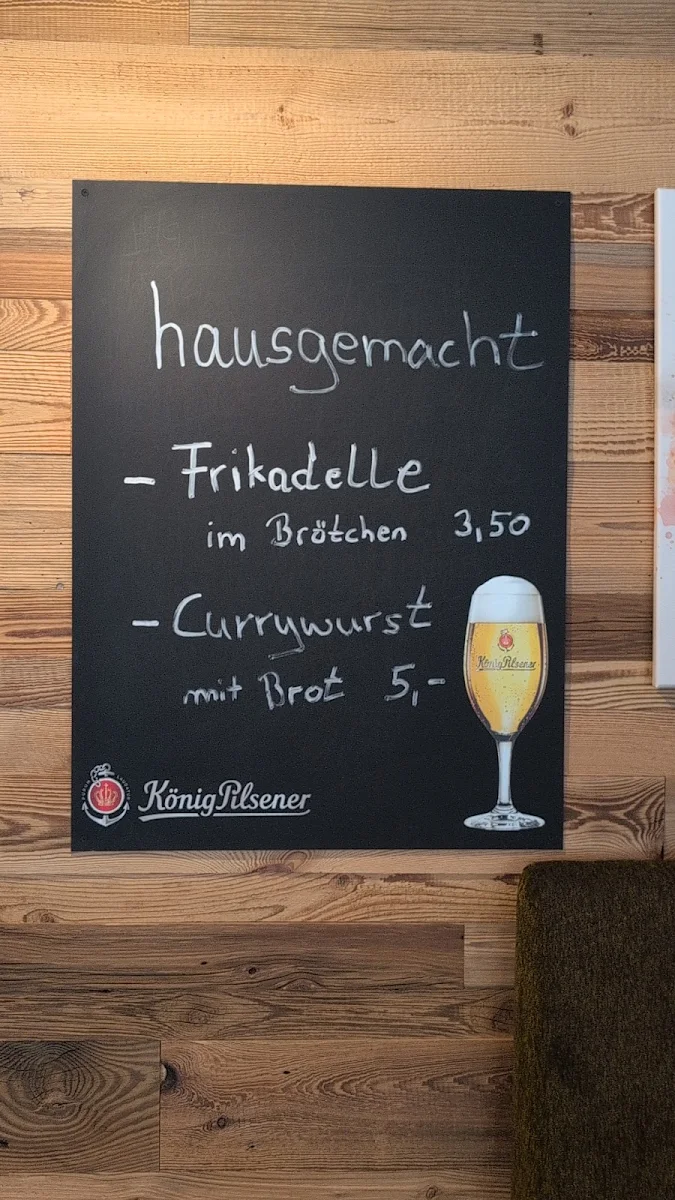 hausgemacht
- Frikadelle
im Brötchen 3,50
- Currywurst
mit Brot 5,-
König Pilsener
König Pilsener